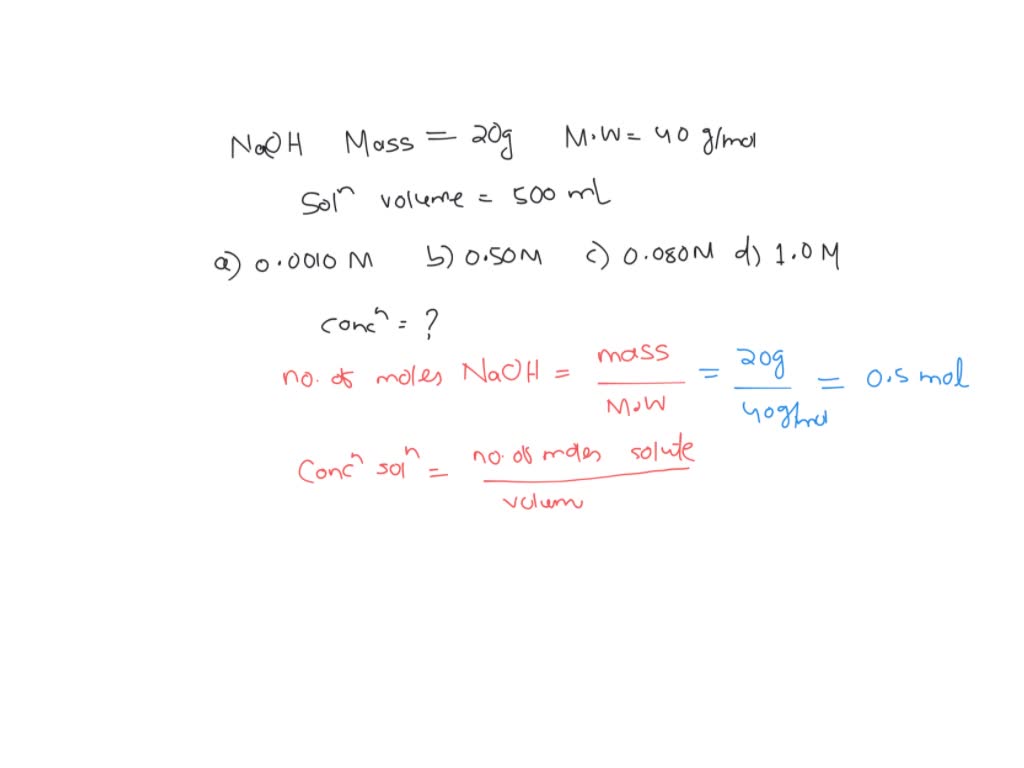 NaOH Mass = 20g M.W = 40 g/mol
Solⁿ volume = 500 mL
a) 0.0010 M b) 0.50M c) 0.080M d) 1.0 M
concⁿ = ?
no. of moles NaOH = mass / M.W = 20g / 40g/mol = 0.5 mol
Concⁿ solⁿ = no. of moles solute / volum